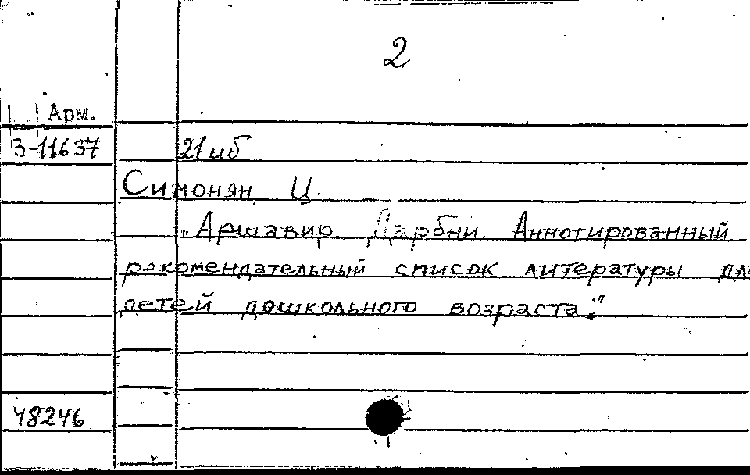 2
Арм.
3-11637
21 иб
Симонян Ц.
„Аршавир Дарбни Аннотированный
рекомендательный список литературы для
детей дошкольного возраста."
48246